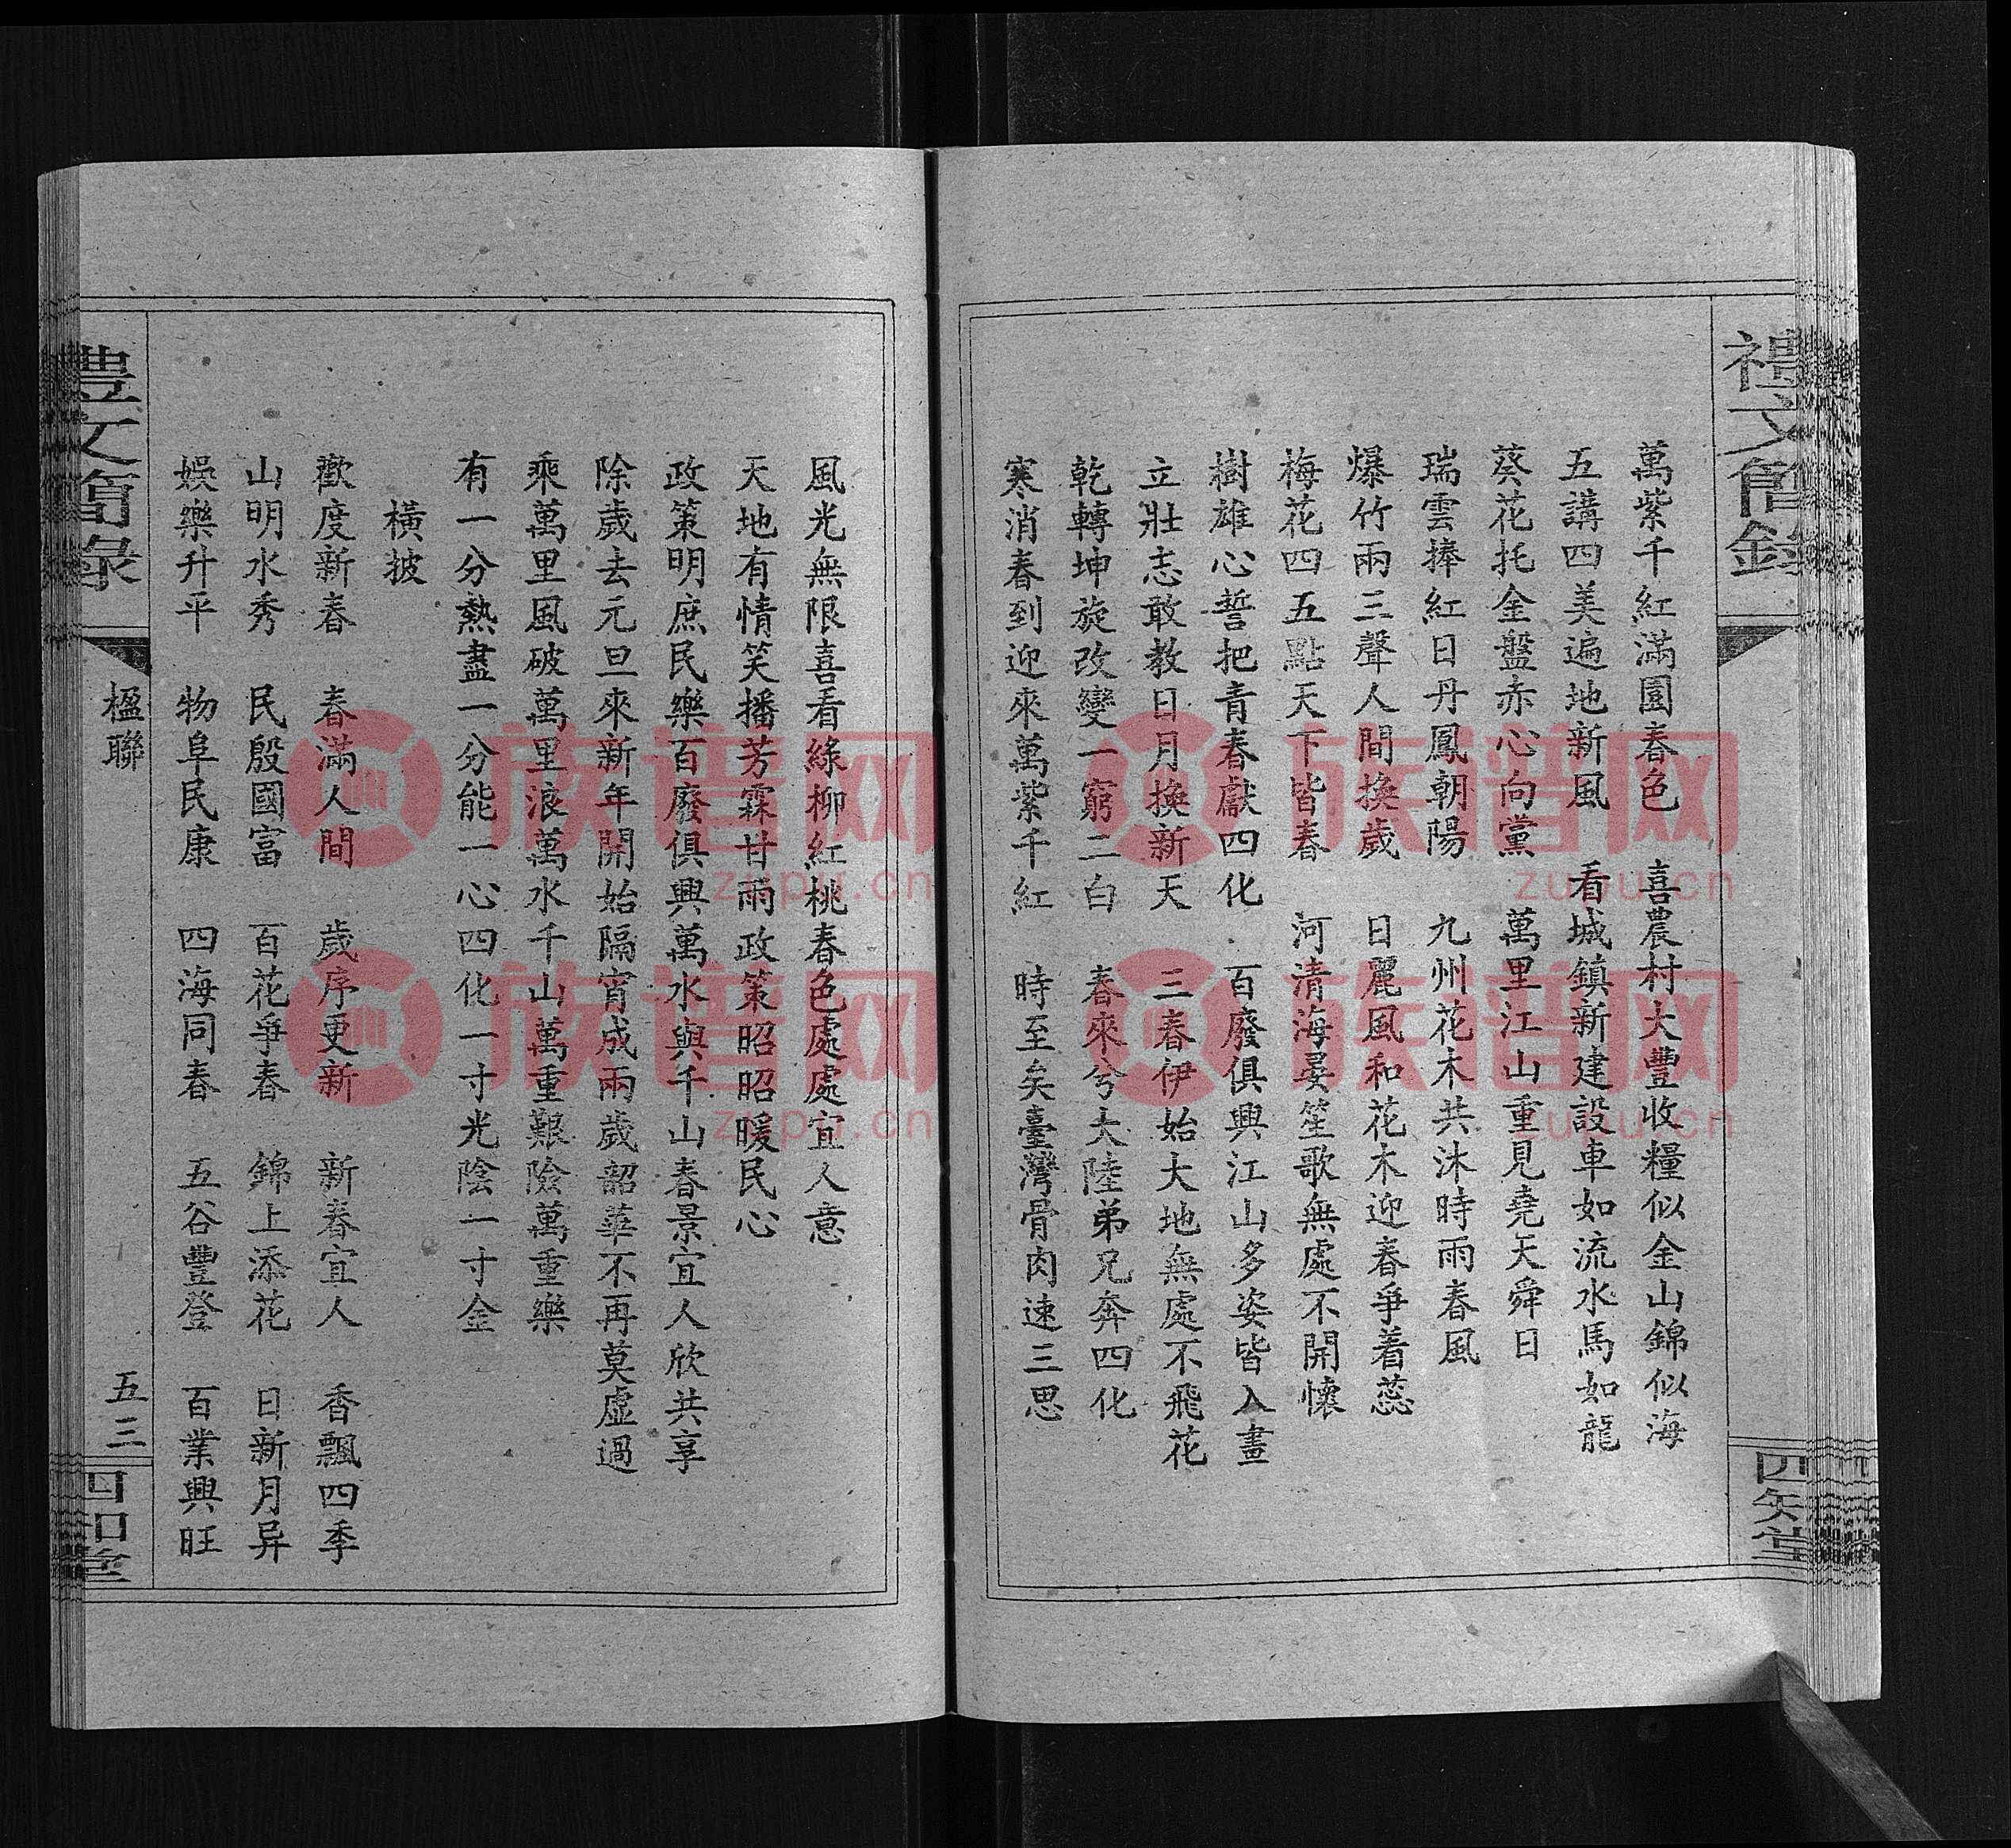 禮文簡錄
四知堂
萬紫千紅滿園春色　喜農村大豐收糧似金山錦似海
五講四美遍地新風　看城鎮新建設車如流水馬如龍
葵花托金盤赤心向黨　萬里江山重見堯天舜日
瑞雲捧紅日丹鳳朝陽　九州花木共沐時雨春風
爆竹兩三聲人間換歲　日麗風和花木迎春爭着蕊
梅花四五點天下皆春　河清海晏笙歌無處不開懷
樹雄心誓把青春獻四化　百廢俱興江山多姿皆入畫
立壯志敢教日月換新天　三春伊始大地無處不飛花
乾轉坤旋改變一窮二白　春來兮大陸弟兄奔四化
寒消春到迎來萬紫千紅　時至矣臺灣骨肉速三思
風光無限喜看綠柳紅桃春色處處宜人意
天地有情笑播芳霖甘雨政策昭昭暖民心
政策明庶民樂百廢俱興萬水與千山春景宜人欣共享
除歲去元旦來新年開始隔宵成兩歲韶華不再莫虛過
乘萬里風破萬里浪萬水千山萬重艱險萬重樂
有一分熱盡一分能一心四化一寸光陰一寸金
橫披
歡度新春　春滿人間　歲序更新　新春宜人　香飄四季
山明水秀　民殷國富　百花爭春　錦上添花　日新月异
娛樂升平　物阜民康　四海同春　五谷豐登　百業興旺
禮文簡錄
楹聯
五三
四知堂
族谱网
zupu.cn
族谱网
zupu.cn
族谱网
zupu.cn
族谱网
zupu.cn